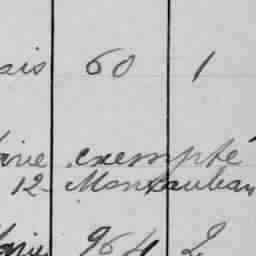 ais 60 1
exempté
12 - Montauban
964 2